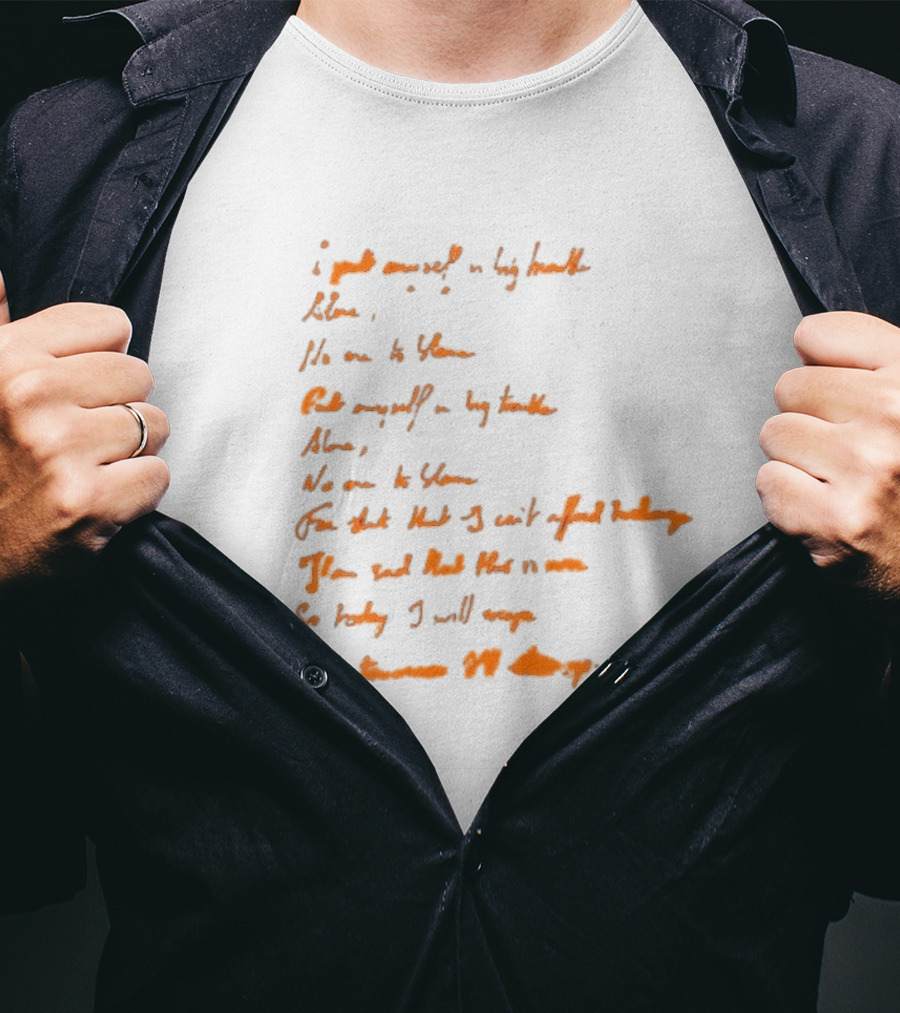 i put myself in big trouble
Alone,
No one to blame
Put myself in big trouble
Alone,
No one to blame
For that that I can't afford
I am sad that this is over
So today I will escape